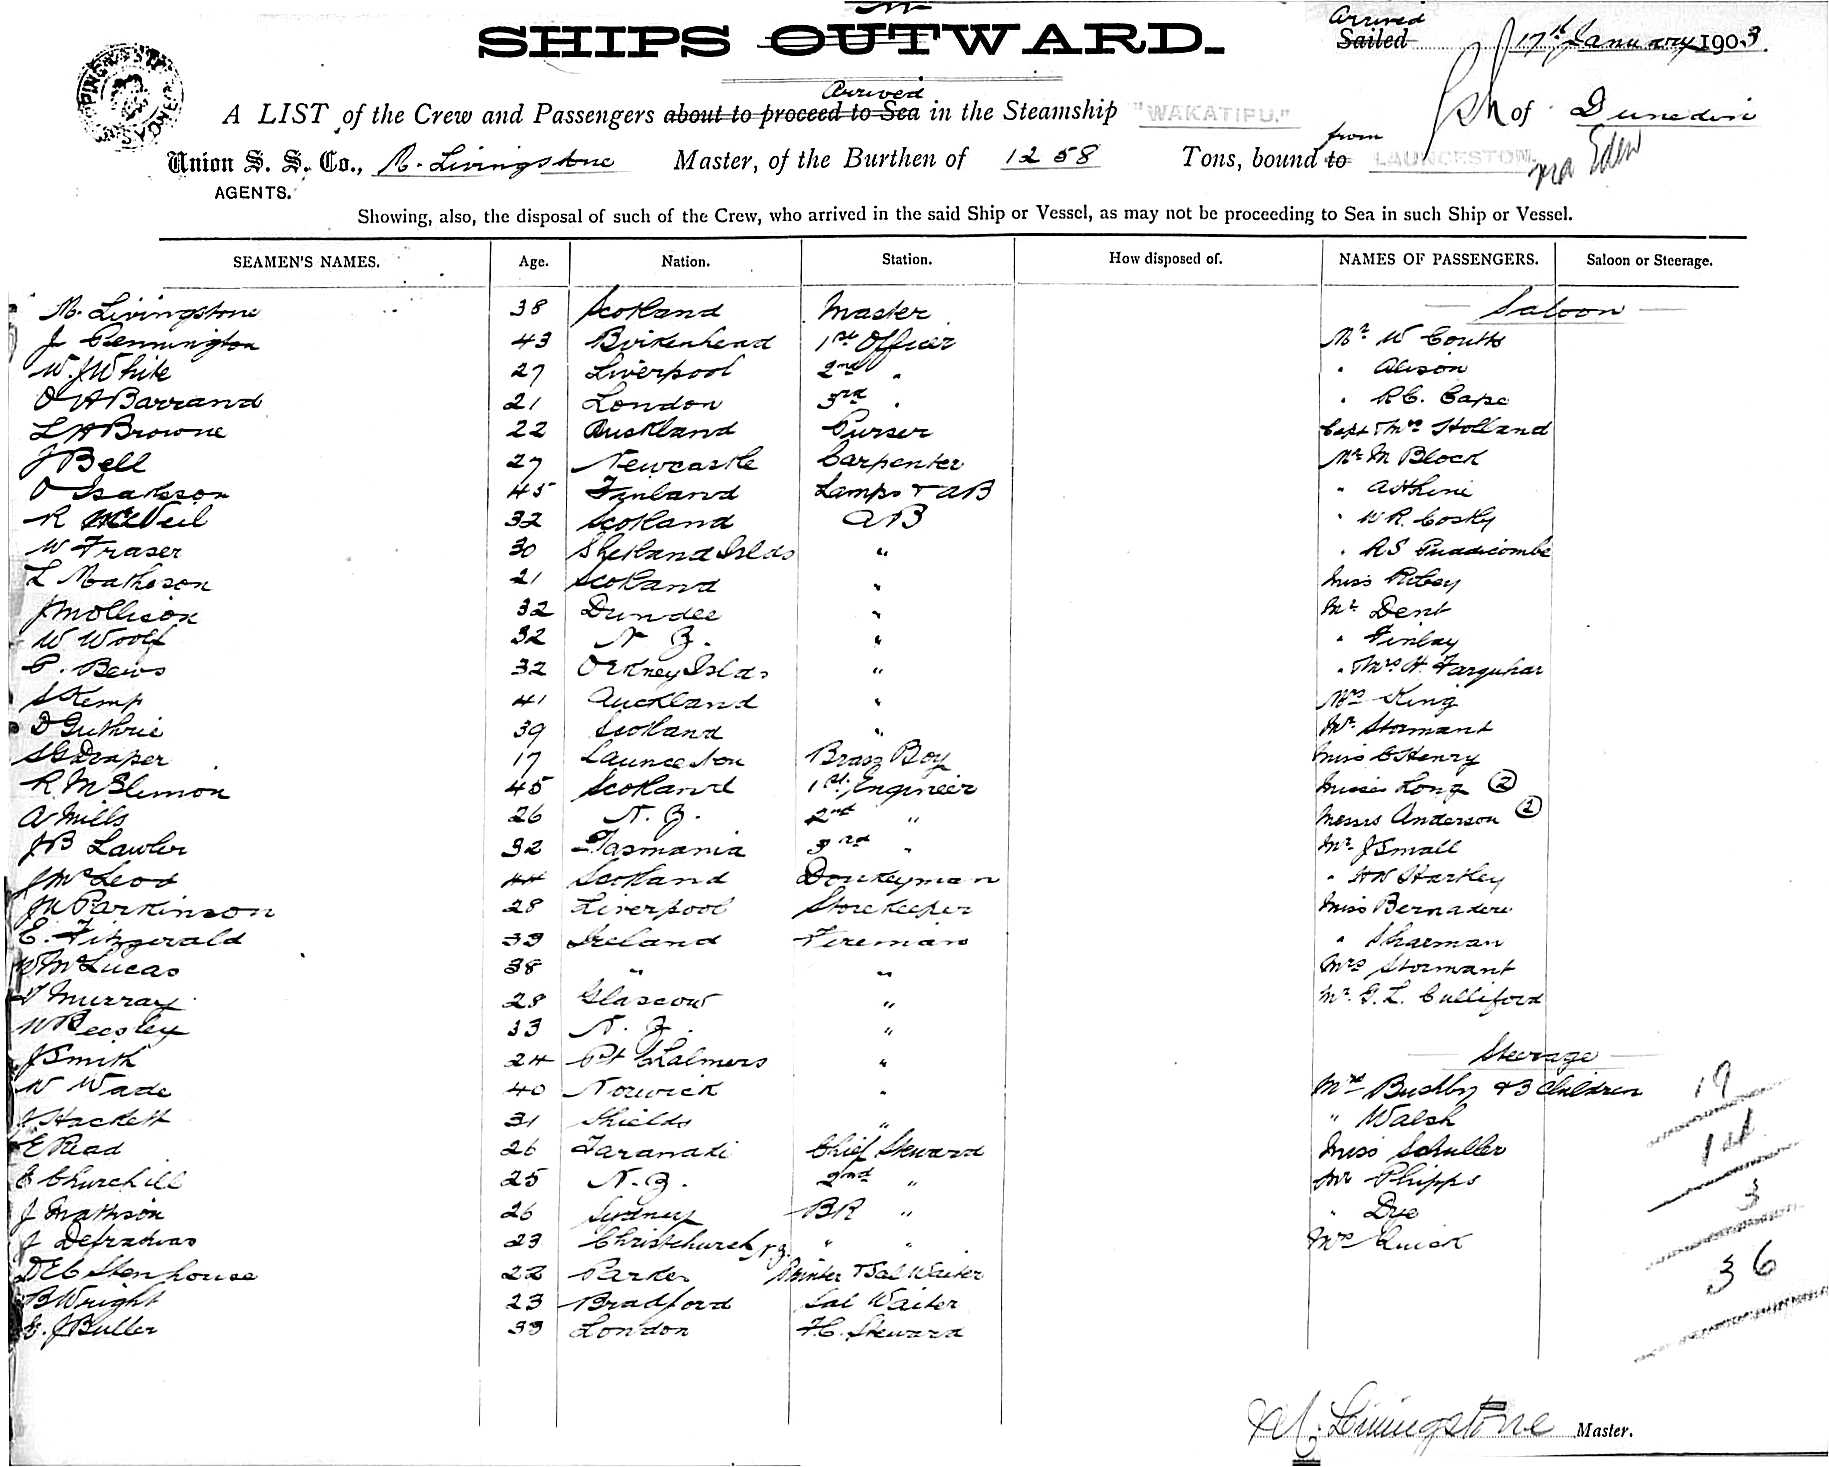 In
SHIPS OUTWARD.
Arrived
Sailed 17th January 1903.
Arrived
A LIST of the Crew and Passengers about to proceed to Sea in the Steamship "WAKATIPU." of Dunedin
from
Union S. S. Co., M. Livingstone Master, of the Burthen of 1258 Tons, bound to LAUNCESTON. via Eden
AGENTS.
Showing, also, the disposal of such of the Crew, who arrived in the said Ship or Vessel, as may not be proceeding to Sea in such Ship or Vessel.
SEAMEN'S NAMES. Age. Nation. Station. How disposed of. NAMES OF PASSENGERS. Saloon or Steerage.
M. Livingstone 38 Scotland Master Saloon
J Pennington 43 Birkenhead 1st Officer Mr W Coutts
W. J White 27 Liverpool 2nd " " Alison
O A Barrand 21 London 3rd " " R C. Cape
L H Browne 22 Auckland Purser Capt & Mrs Holland
J Bell 27 Newcastle Carpenter Mr M Block
O Isaksson 45 Finland Lamps & AB "
R McNeil 32 Scotland AB " W R.
W Fraser 30 Shetland Islds " " R S Pradicombe
L Matheson 21 Scotland " Miss Ribey
J Mollison 32 Dundee " Mr Dent
W Woolf 32 N Z. " " Finlay
P. Bews 32 Orkney Islds " " & Mrs H. Farquhar
S Kemp 41 Auckland " Mrs King
D Guthrie 39 Scotland " Mr Stormant
S G Draper 17 Launceston Brass Boy Miss C Henry
R McSlimon 45 Scotland 1st Engineer Misses Long (2)
A Mills 26 N. Z. 2nd " Messrs Anderson (2)
J B Lawler 32 Tasmania 3rd " Mr J Small
J McLeod 44 Scotland Donkeyman " H W Hartley
J W Parkinson 28 Liverpool Storekeeper Miss Bernadere
E. Fitzgerald 39 Ireland Fireman " Sharman
W. McLucas 38 " " Mrs Stormant
T Murray 28 Glascow " Mr. G. L. Culliford
W Beesley 33 N. Z. "
J Smith 24 Pt Chalmers " Steerage
W Wade 40 Norwick " Mrs Bushby & 3 Children
J Hackett 31 Shields " " Walsh
E Read 26 Taranaki Chief Steward Miss Schuller
E Churchill 25 N. Z. 2nd " Mr Phipps
J Mathison 26 Sydney BR " " Dye
J Defradvas 23 Christchurch N. Z. " " Mrs Quick
D E C Stenhouse 22 Parkes Printer & Sal Waiter
B Wright 23 Bradford Sal Waiter
E. J Buller 39 London F. C. Steward
19
14
3
36
M. Livingstone Master.